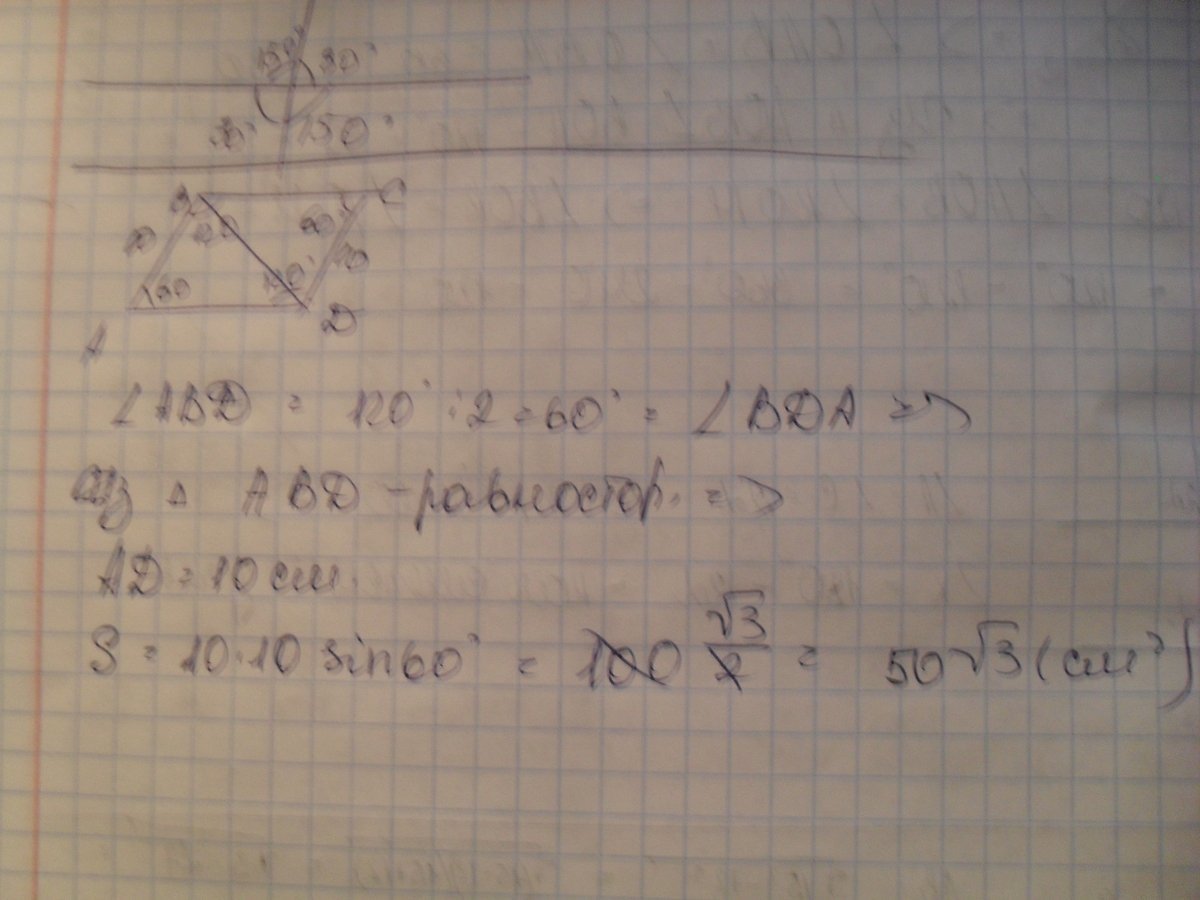 150° 30°
30° 150°
B C
10 60 60° 10
60 120°
D
A
∠ABD = 120° : 2 = 60° = ∠BDA =>
Δ ABD - равностор. =>
AD = 10 см.
S = 10·10 sin60° = 100 √3/2 = 50√3 (см²)